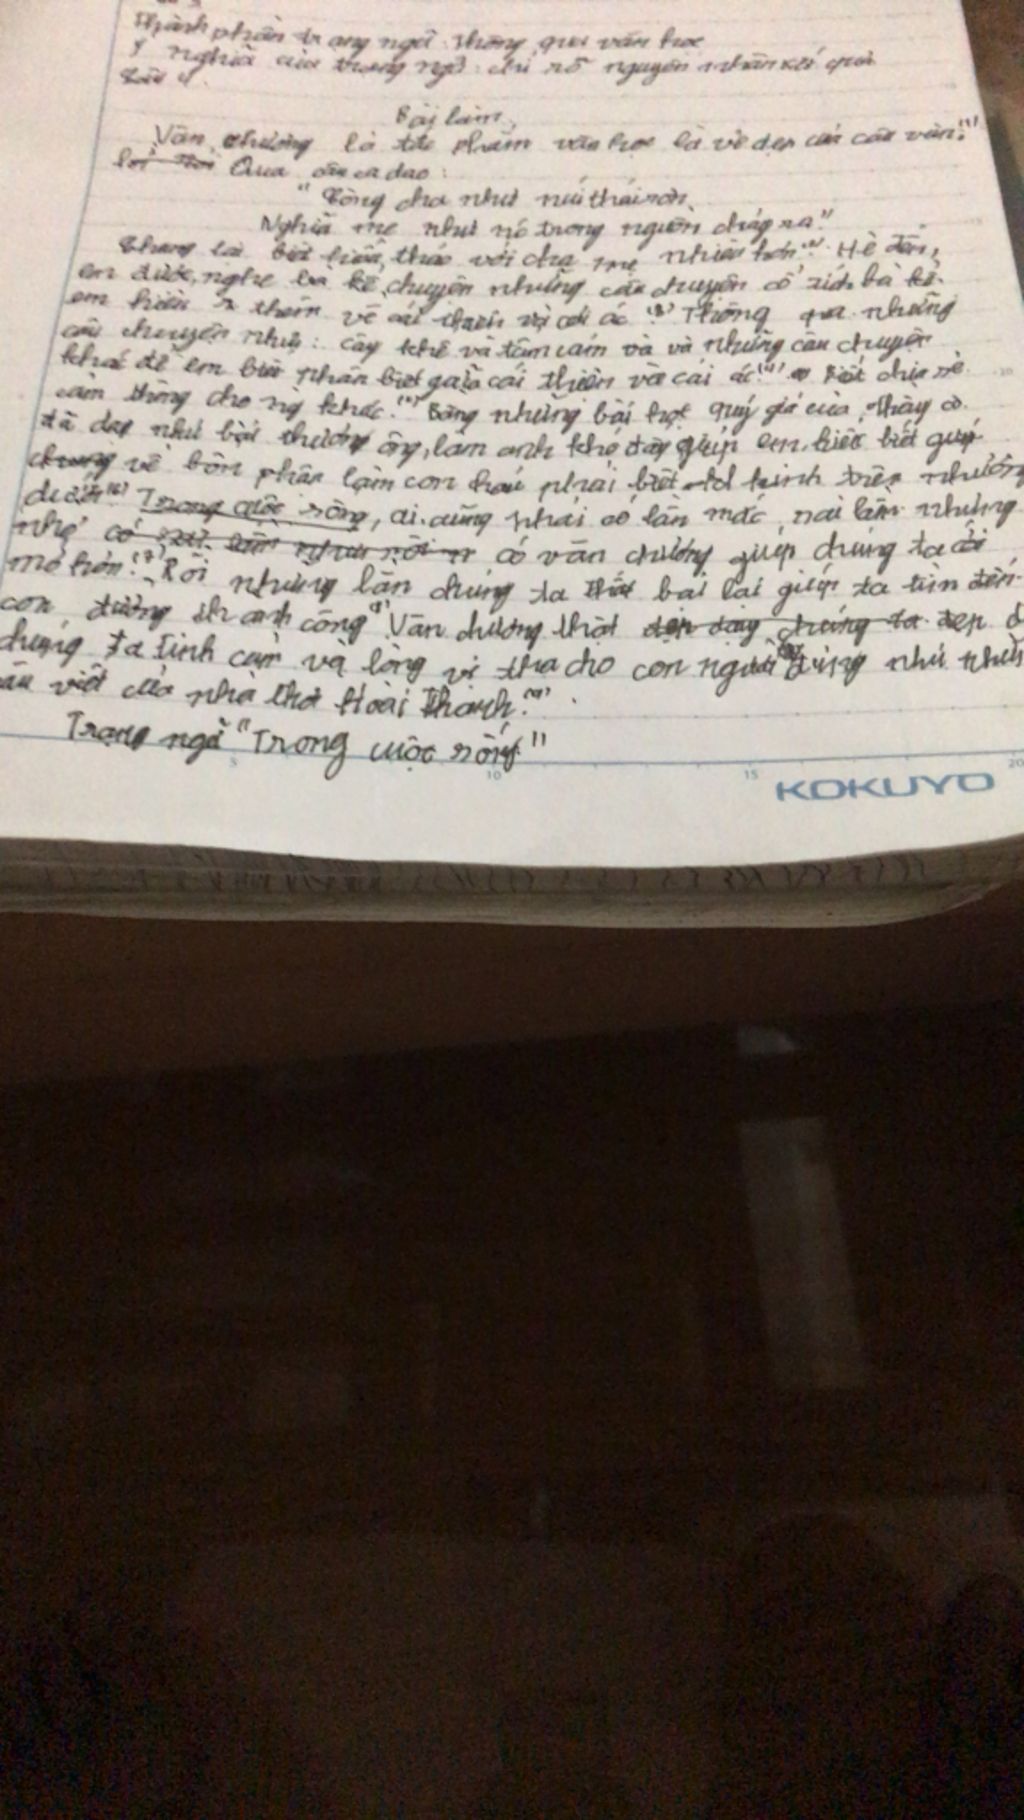 Thành phần trạng ngữ: Thông qua văn học
Ý nghĩa của trạng ngữ: chỉ rõ nguyên nhân kết quả
Bài làm
Văn chương là tác phẩm văn học là vẻ đẹp của câu văn.(1)
Qua câu ca dao:
"Công cha như núi thái sơn
Nghĩa mẹ như nó trong nguồn chảy ra"
biết hiếu thảo với cha mẹ nhiều hơn.(2) Hè đến,
em được nghe bà kể chuyện những câu chuyện cổ tích bà kể
em hiểu thêm về cái thiện và cái ác.(3) Thông qua những
câu chuyện như: cây khế và tấm cám và và những câu chuyện
khác để em biết phân biệt cái thiện và cái ác.(4) Biết chia sẻ
cảm thông cho ng khác.(5) Bằng những bài học quý giá của thầy cô
đã dạy như bài thương ông, làm anh khó đấy giúp em biết
về bổn phận làm con cháu phải biết trên nhường
dưới.(6) Trong cuộc sống, ai cũng phải có lần mắc những
nhẹ có văn chương giúp chúng ta cởi
mở hơn.(7) Rồi những lần chúng ta thất bại lại giúp ta tìm đến
con đường thành công.(8) Văn chương thật đẹp
chúng ta tình cảm và lòng vị tha cho con người đúng như
viết của nhà thơ Hoài Thanh.(9)
Trạng ngữ "Trong cuộc sống"
5 10 15 20
KOKUYO